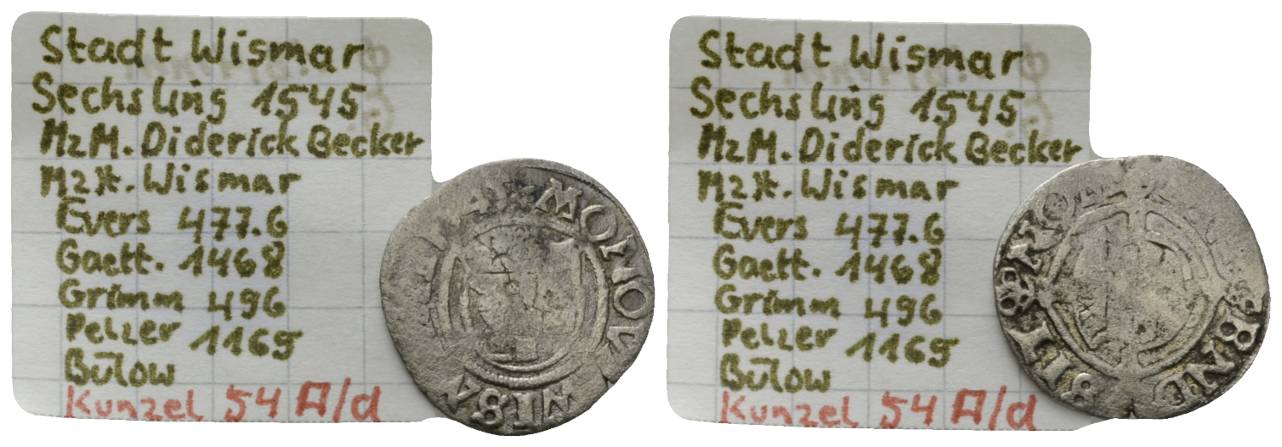 Stadt Wismar
Sechsling 1545
MzM. Diderick Becker
Mzst. Wismar
Evers 477.6
Gaett. 1468
Grimm 496
Pelzer 1169
Bülow
Kunzel 54 A/d
MONOV
WISA
Stadt Wismar
Sechsling 1545
MzM. Diderick Becker
Mzst. Wismar
Evers 477.6
Gaett. 1468
Grimm 496
Pelzer 1169
Bülow
Kunzel 54 A/d